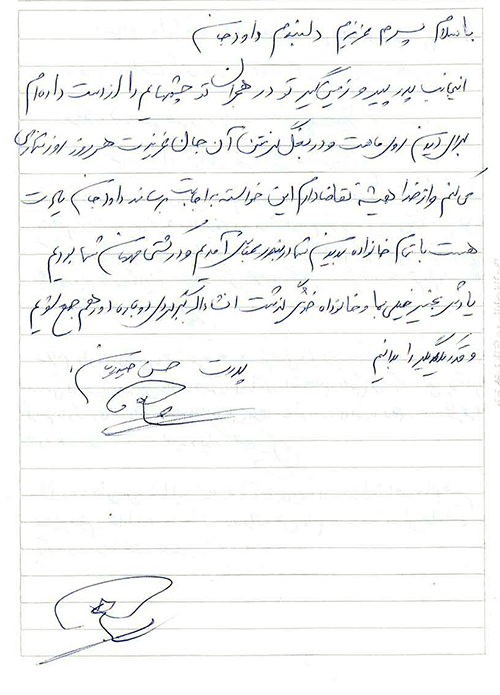 با سلام پسرم عزیزم دلبندم داودجان
اینجانب پدر پیر و زمین‌گیر تو در هجران تو چشمهایم را از دست داده‌ام
برای دیدن روی ماهت و در بغل گرفتن آن جان عزیزت هر روز روز شماری
می‌کنم و از خدا همیشه تقاضا دارم این خواسته به اجابت برساند داودجان یادت
هست با تمام خانواده بدیدن شما در بندر آمدیم و در کشتی مهمان شما بودیم
یادش بخیر خیلی بما و خانواده خوش گذشت انشاءالله برگردی دوباره دور هم جمع شویم
و قدر یکدیگر را بدانیم
پدرت حسن